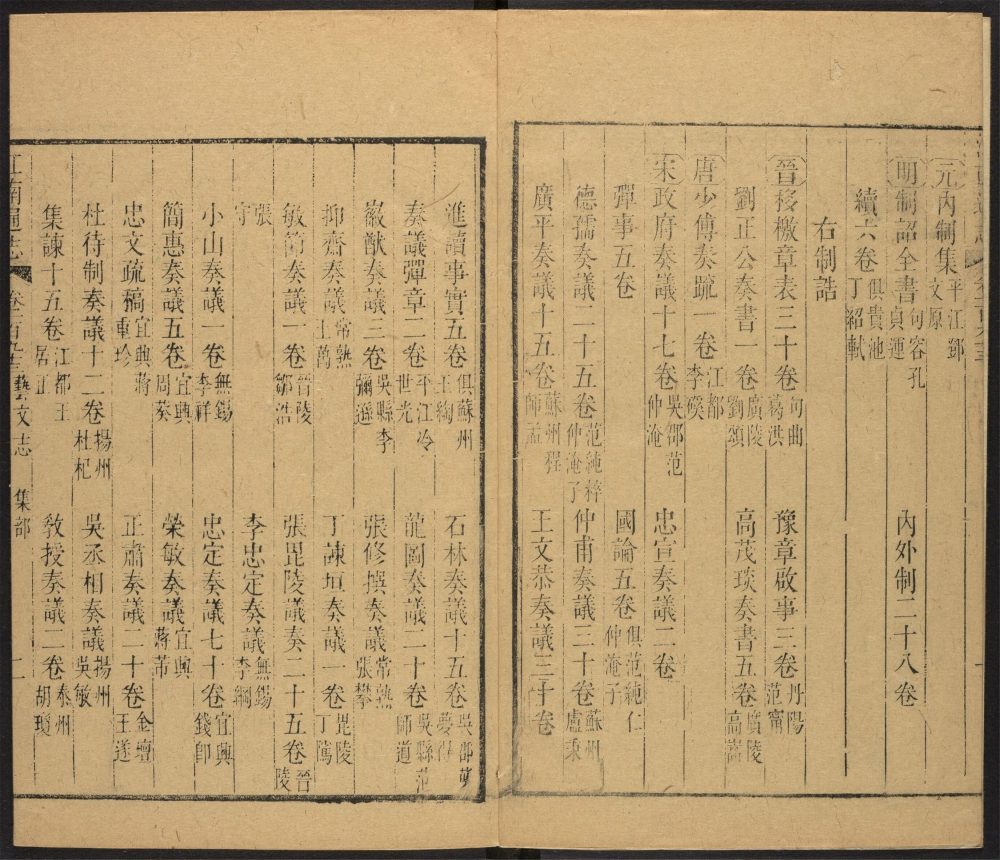 元內制集平江鄧文原
明制詔全書句容孔貞運 內外制二十八卷
續六卷俱貴池丁紹軾
右制誥
晉移檄章表三十卷句曲葛洪 豫章啟事三卷丹陽范甯
劉正公奏書一卷廣陵劉頌 高茂琰奏書五卷廣陵高嵩
唐少傳奏疏一卷江都李磎
宋政府奏議十七卷吳郡范仲淹 忠宣奏議二卷
彈事五卷 國論五卷俱范純仁仲淹子
德孺奏議二十五卷范純粹仲淹子 仲甫奏議三十卷蘇州盧秉
廣平奏議十五卷蘇州程師孟 王文恭奏議三十卷
進讀事實五卷俱蘇州王綯 石林奏議十五卷吳郡葉夢得
奏議彈章二卷平江冷世光 龍圖奏議二十卷吳縣范師道
徽猷奏議三卷吳縣李彌遜 張修撰奏議常熟張攀
抑齋奏議常熟王萬 丁諫垣奏議一卷毘陵丁隲
敏節奏議一卷晉陵鄒浩 張毘陵議奏二十五卷晉陵
張守 李忠定奏議無錫李綱
小山奏議一卷無錫李祥 忠定奏議七十卷宜興錢卽
簡惠奏議五卷宜興周葵 榮敏奏議宜興蔣芾
忠文疏稿宜興蔣重珍 正肅奏議二十卷金壇王遂
杜待制奏議十二卷揚州杜杞 吳丞相奏議揚州吳敏
集諫十五卷江都王居正 教授奏議二卷泰州胡瑗
江南通志 卷一百九十三 藝文志 集部 二